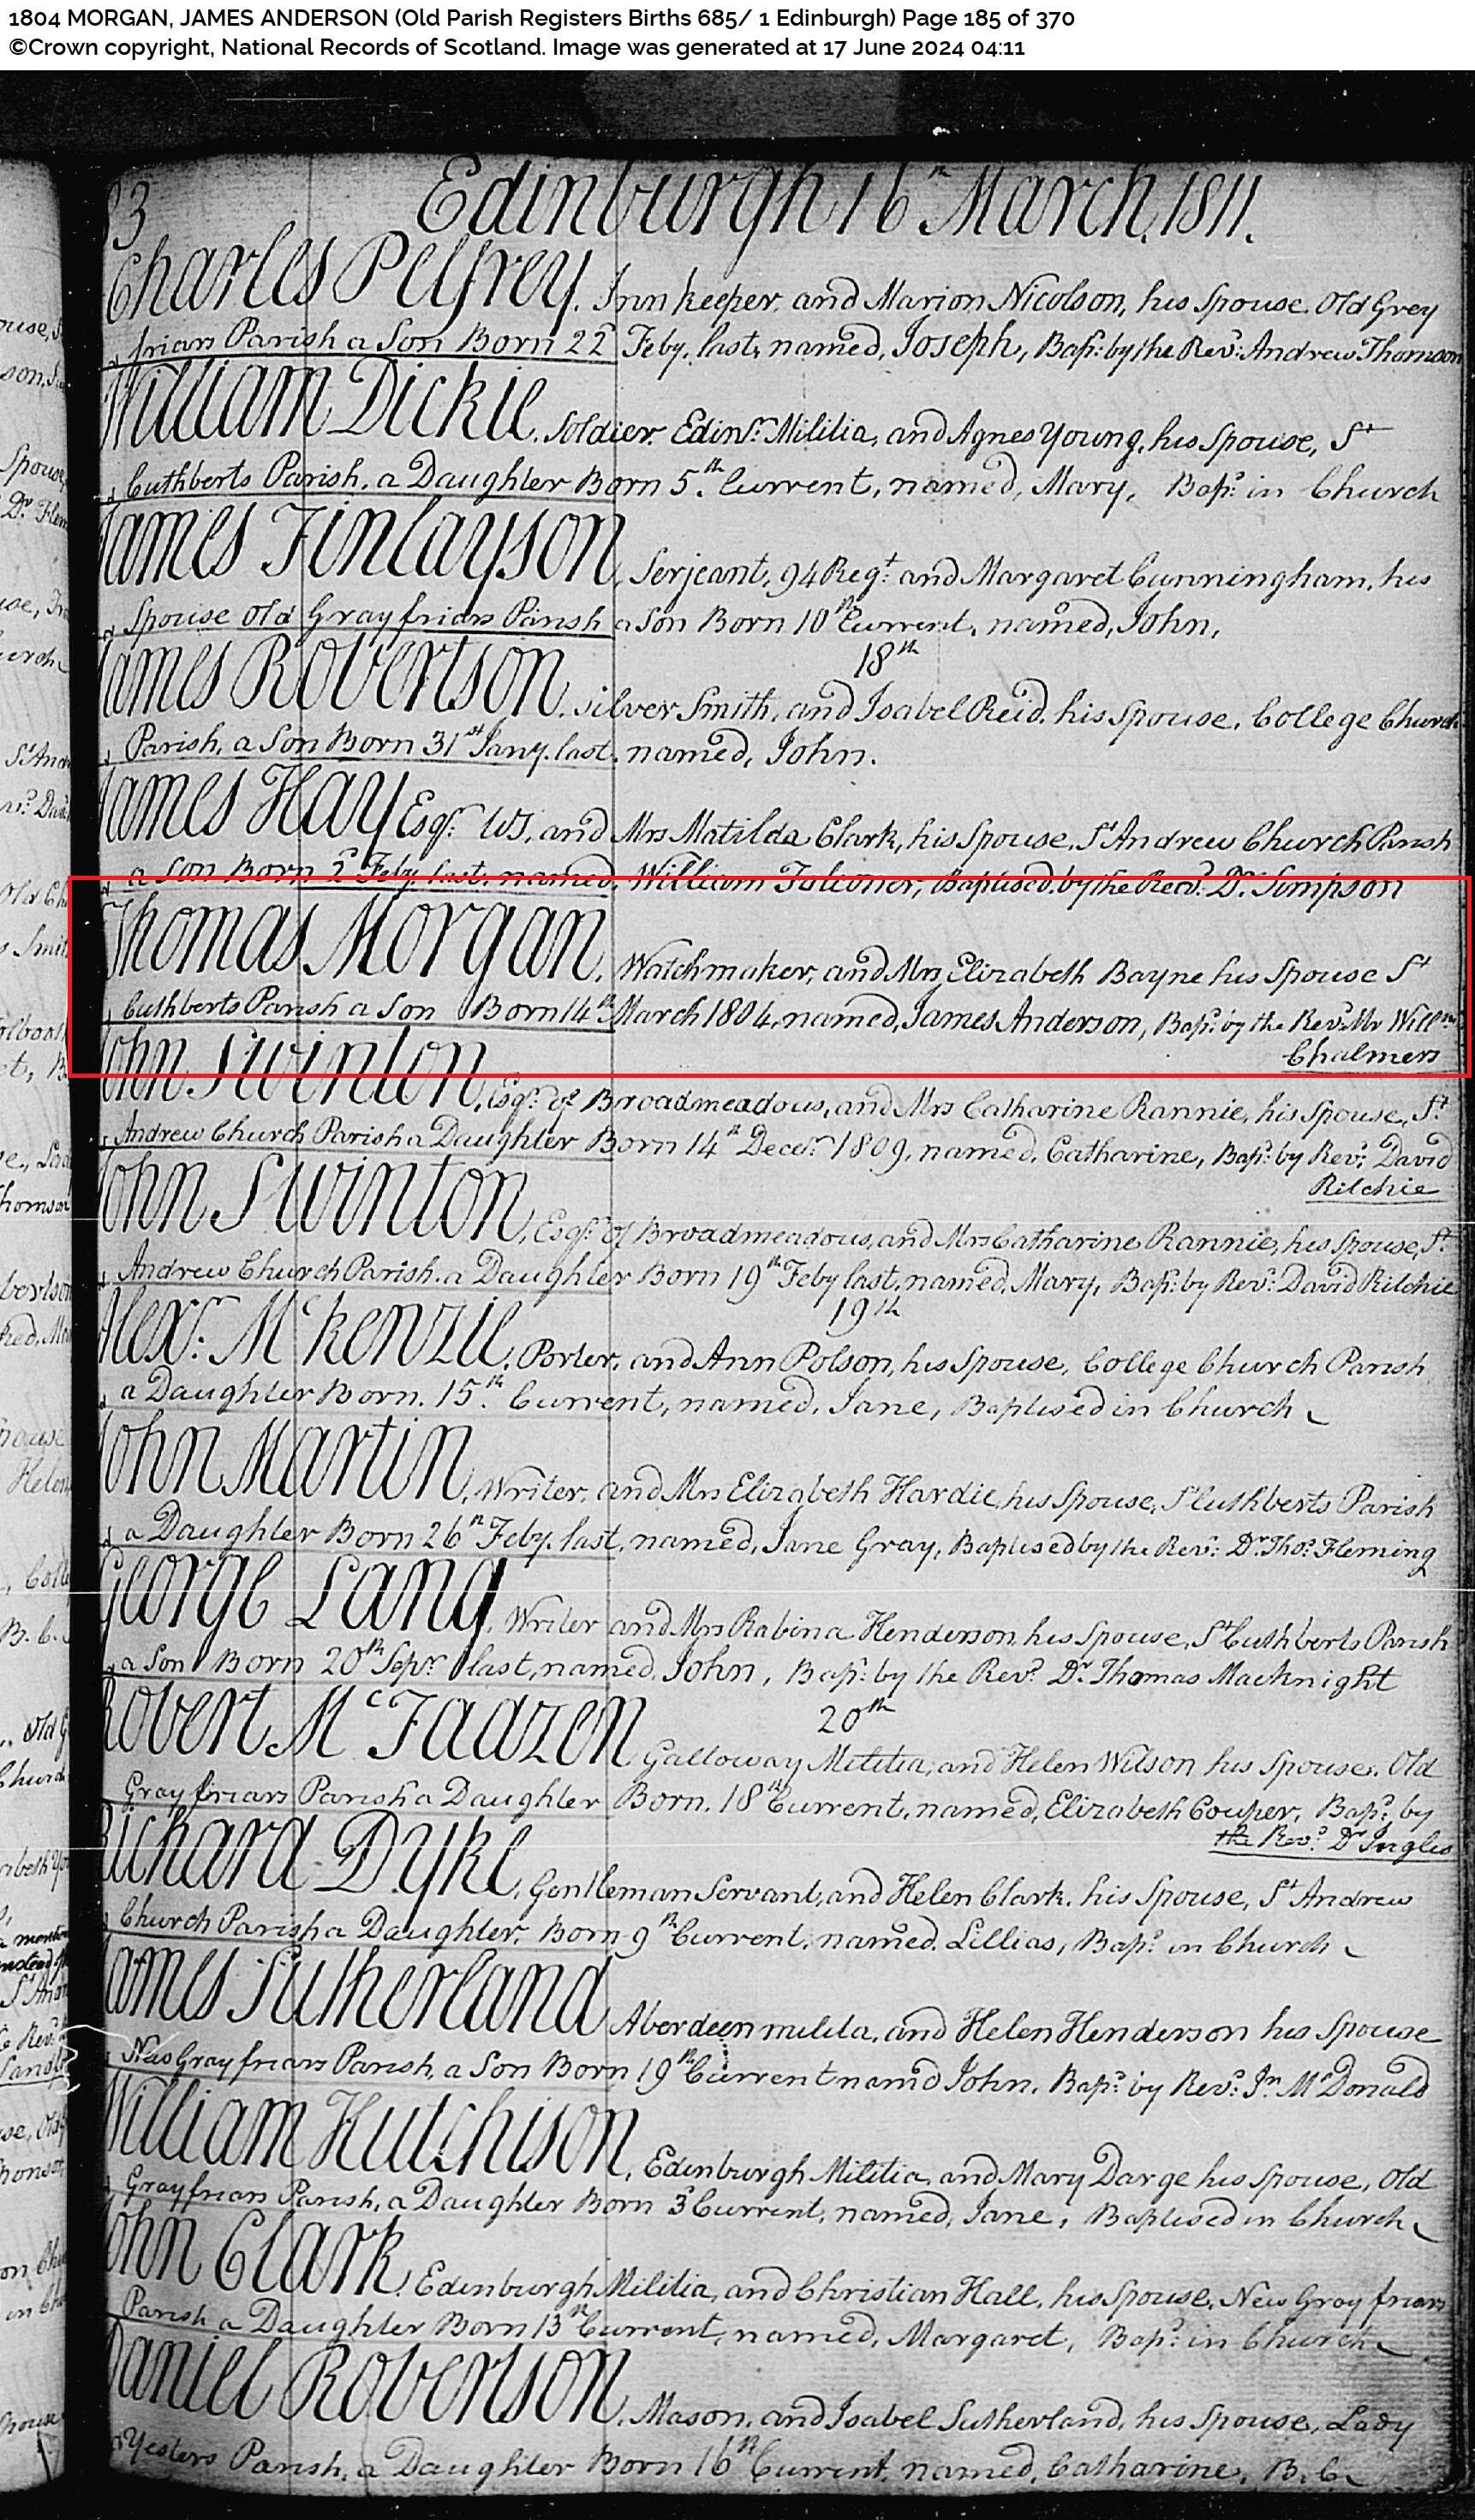 1804 MORGAN, JAMES ANDERSON (Old Parish Registers Births 685/ 1 Edinburgh) Page 185 of 370
©Crown copyright, National Records of Scotland. Image was generated at 17 June 2024 04:11
Edinburgh 16th March, 1811.
Charles Pelfrey. Inn keeper, and Marion Nicolson, his Spouse. Old Grey
friars Parish a Son Born 22d Feby. last, named, Joseph, Bapd. by the Revd. Andrew Thomson
William Dickie. Soldier Edinr. Militia, and Agnes Young, his Spouse, St
Cuthberts Parish, a Daughter Born 5th. Current, named, Mary, Bapd. in Church
James Finlayson, Serjeant, 94 Regt and Margaret Cunningham, his
Spouse Old Grayfriars Parish a Son Born 10th Current, named, John,
18th
James Robertson. Silver Smith, and Isabel Reid. his Spouse, College Church
Parish, a Son Born 31st Jany. last, named, John.
James Hay Esqr. WS, and Mrs Matilda Clark, his Spouse, St Andrew Church Parish
a Son Born 2d Feby. last, named, William Falconer, Baptised by the Revd. Dr. Simpson
Thomas Morgan, Watchmaker, and Mrs Elizabeth Bayne his Spouse St
Cuthberts Parish a Son Born 14th March 1804, named, James Anderson, Bapd. by the Revd. Mr Willm
Chalmers
John Swinton, Esqr. of Broadmeadows, and Mrs Catharine Rannie, his Spouse, St.
Andrew Church Parish a Daughter Born 14th Decer. 1809, named, Catharine, Bapd. by Revd. David
Ritchie
John Swinton, Esqr. of Broadmeadows, and Mrs Catharine Rannie, his Spouse, St.
Andrew Church Parish. a Daughter Born 19th Feby last, named, Mary, Bapd. by Revd. David Ritchie
19th
Alexr. McKenzie, Porter, and Ann Polson, his Spouse, College Church Parish
a Daughter Born. 15th. Current, named, Jane, Baptised in Church
John Martin, Writer, and Mrs Elizabeth Hardie, his Spouse, St Cuthberts Parish
a Daughter Born 26th Feby. last, named, Jane Gray, Baptised by the Revd. Dr. Thos. Fleming
George Lang, Writer and Mrs Rabina Henderson, his Spouse, St Cuthberts Parish
a Son Born 20th Sepr last, named, John, Bapd. by the Revd. Dr. Thomas Macknight
20th
Robert McFadzen Galloway Militia, and Helen Wilson his Spouse. Old
Grayfriars Parish a Daughter Born. 18th Current, named, Elizabeth Couper, Bapd. by
the Revd. Dr Inglis
Richard Dyke, Gentleman Servant, and Helen Clark. his Spouse, St Andrew
Church Parish a Daughter, Born 9th Current, named, Lillias, Bapd. in Church
James Sutherland Aberdeen milita, and Helen Henderson his Spouse
New Grayfriars Parish, a Son Born 19th Current namd John. Bapd. by Revd. Jn. McDonald
William Hutchison, Edinburgh Militia, and Mary Darge his Spouse, Old
Grayfriars Parish, a Daughter Born 3d Current, named, Jane, Baptised in Church
John Clark, Edinburgh Militia, and Christian Hall, his Spouse, New Grayfriars
Parish a Daughter Born 13th Current, named, Margaret, Bapd. in Church
Daniel Robertson, Mason, and Isabel Sutherland, his Spouse, Lady
Yesters Parish, a Daughter Born 16th Current, named, Catharine, B. C.